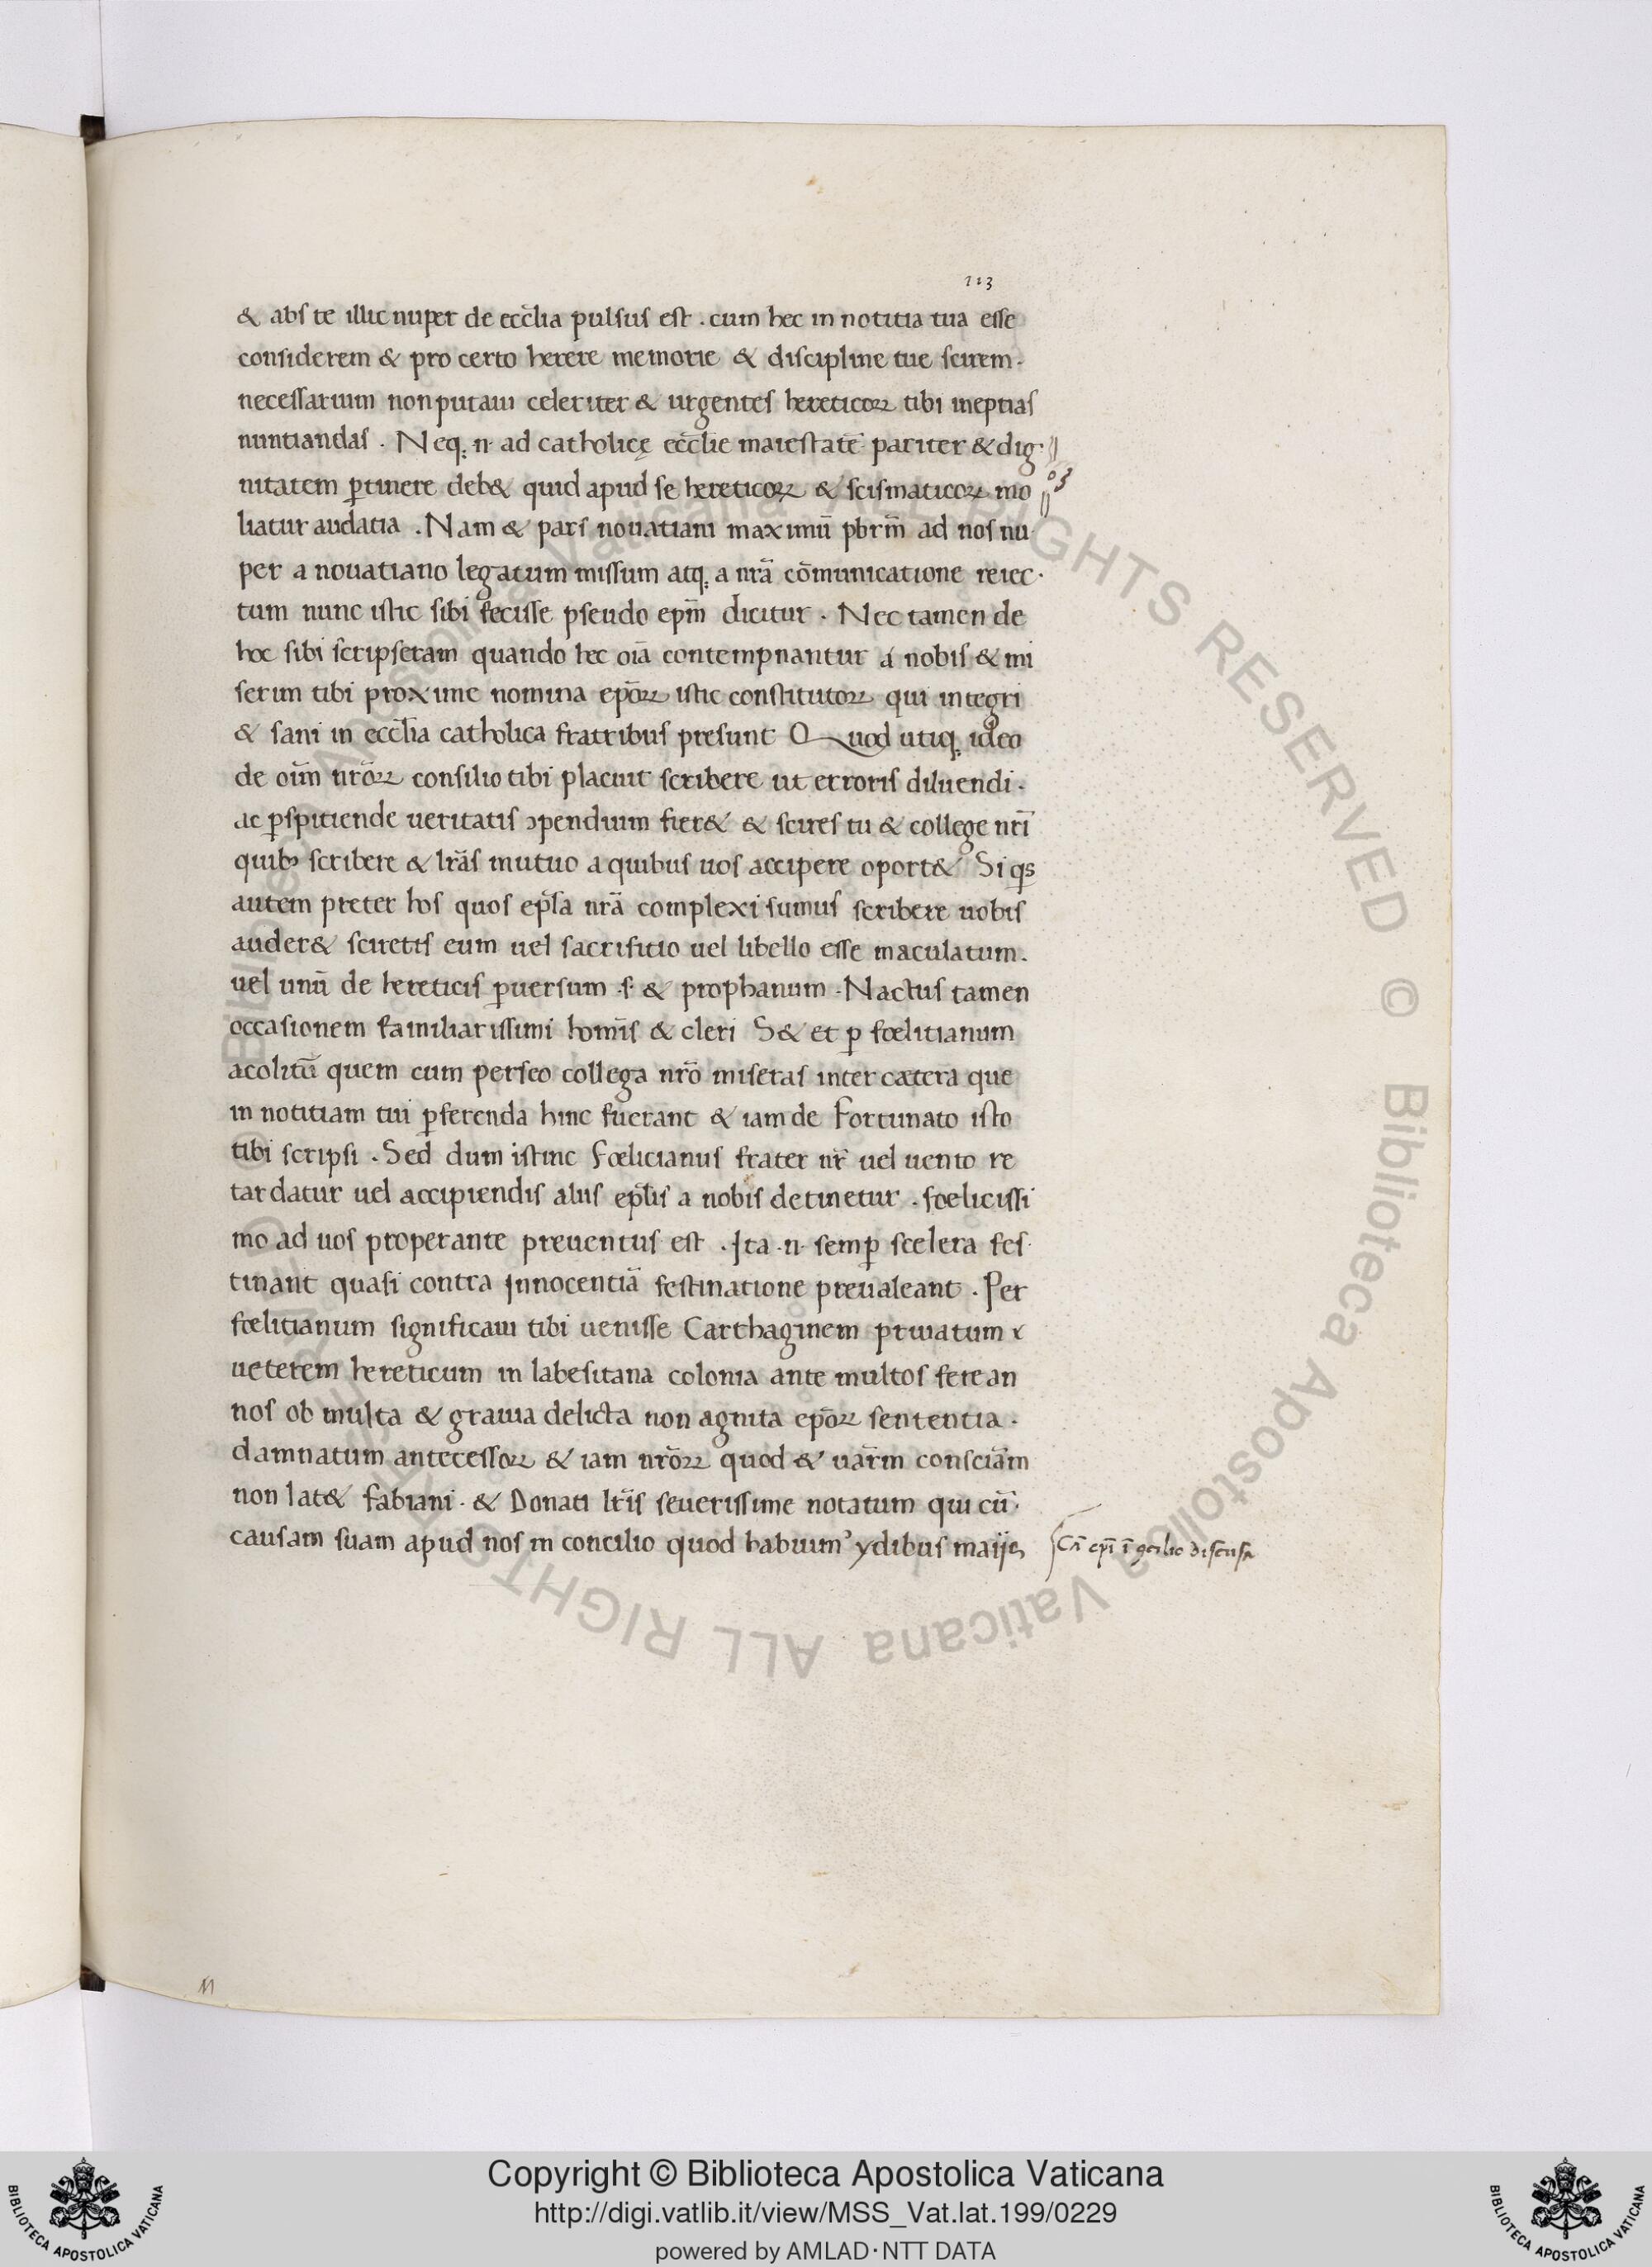 113
& abs te illic nuper de eccl̄ia pulsus est . cum hec in notitia tua esse
considerem & pro certo herere memorie & discipline tue scirem .
necessarium non putaui celeriter & urgentes hereticoꝝ tibi ineptias
nuntiandas . Neq; .n. ad catholicę eccl̄ie maiestatē pariter & dig
nitatem ꝑtinere deb& quid apud se hereticoꝝ & scismaticoꝝ mo
liatur audatia . Nam & pars nouatiani maximū pbr̄m ad nos nu
per a nouatiano legatum missum atq; a nr̄a cōmunicatione reiec
tum nunc istic sibi fecisse pseudo ep̄m dicitur . Nec tamen de
hoc sibi scripseram quando hec oīa contempnantur á nobis & mi
serim tibi proxime nomina ep̄oꝝ istic constitutoꝝ qui integri
& sani in eccl̄ia catholica fratribus presunt Quod utiq; ideo
de oīm nr̄oꝝ consilio tibi placuit scribere ut erroris diluendi .
ac ꝑspitiende ueritatis ɔpendium fier& & scires tu & college nr̄i
quibꝰ scribere & lr̄as mutuo a quibus uos accipere oport& Si qs
autem preter hos quos ep̄la nr̄a complexi sumus scribere uobis
auder& sciretis eum uel sacrifitio uel libello esse maculatum .
uel unū de hereticis ꝑuersum .s. & prophanum . Nactus tamen
occasionem familiarissimi homīs & cleri S& et ꝑ fœlitianum
acolitū quem cum perseo collega nr̄o miseras inter cætera que
in notitiam tui ꝑferenda hinc fuerant & iam de Fortunato isto
tibi scripsi . Sed dum istinc Fœlicianus frater nr̄ uel uento re
tardatur uel accipiendis aliis ep̄lis a nobis detinetur . fœlicissi
mo ad uos properante preuentus est . Ita .n. semꝑ scelera fes
tinant quasi contra Innocentiā festinatione preualeant . Per
fœlitianum significaui tibi uenisse Carthaginem priuatum
ueterem hereticum in labesitana colonia ante multos fere an
nos ob multa & grauia delicta non agnita ep̄oꝝ sententia .
damnatum antecessoꝝ & iam nr̄oꝝ quod & uar̄m consciam̄
non lat& fabiani . & Donati lr̄is seuerissime notatum qui cū
causam suam apud nos in concilio quod habuimꝰ ydibus maije,
M
Copyright © Biblioteca Apostolica Vaticana
http://digi.vatlib.it/view/MSS_Vat.lat.199/0229
powered by AMLAD·NTT DATA
BIBLIOTECA APOSTOLICA VATICANA
BIBLIOTECA APOSTOLICA VATICANA
Biblioteca Apostolica Vaticana ALL RIGHTS RESERVED ©